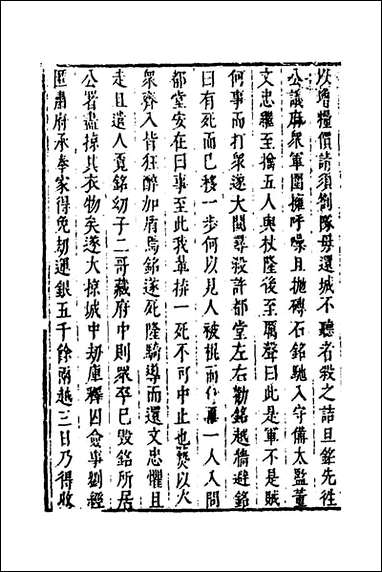 以增糧價請須劄隊毋還城不聽者殺之詰旦銘先徃
公議府衆軍圍擁呼噪且拋磚石銘馳入守備太監董
文忠繼至擒五人與杖隆後至厲聲曰此是軍不是賊
何事而打衆遂大閧尋殺許都堂左右勸銘越牆避銘
曰有死而已移一步何以見人被執而仆一人入問
都堂安在曰事至此我輩拚一死不可中止也爇以火
衆齊入皆狂醉加屠焉銘遂死隆騎導而還文忠懼且
走且遣人覔銘幼子二哥藏府中則衆卒已毀銘所居
公署盡掠其衣物矣遂大掠城中刼庫釋囚僉事劉經
匿肅府承奉家得免刼運銀五千餘兩越三日乃得收